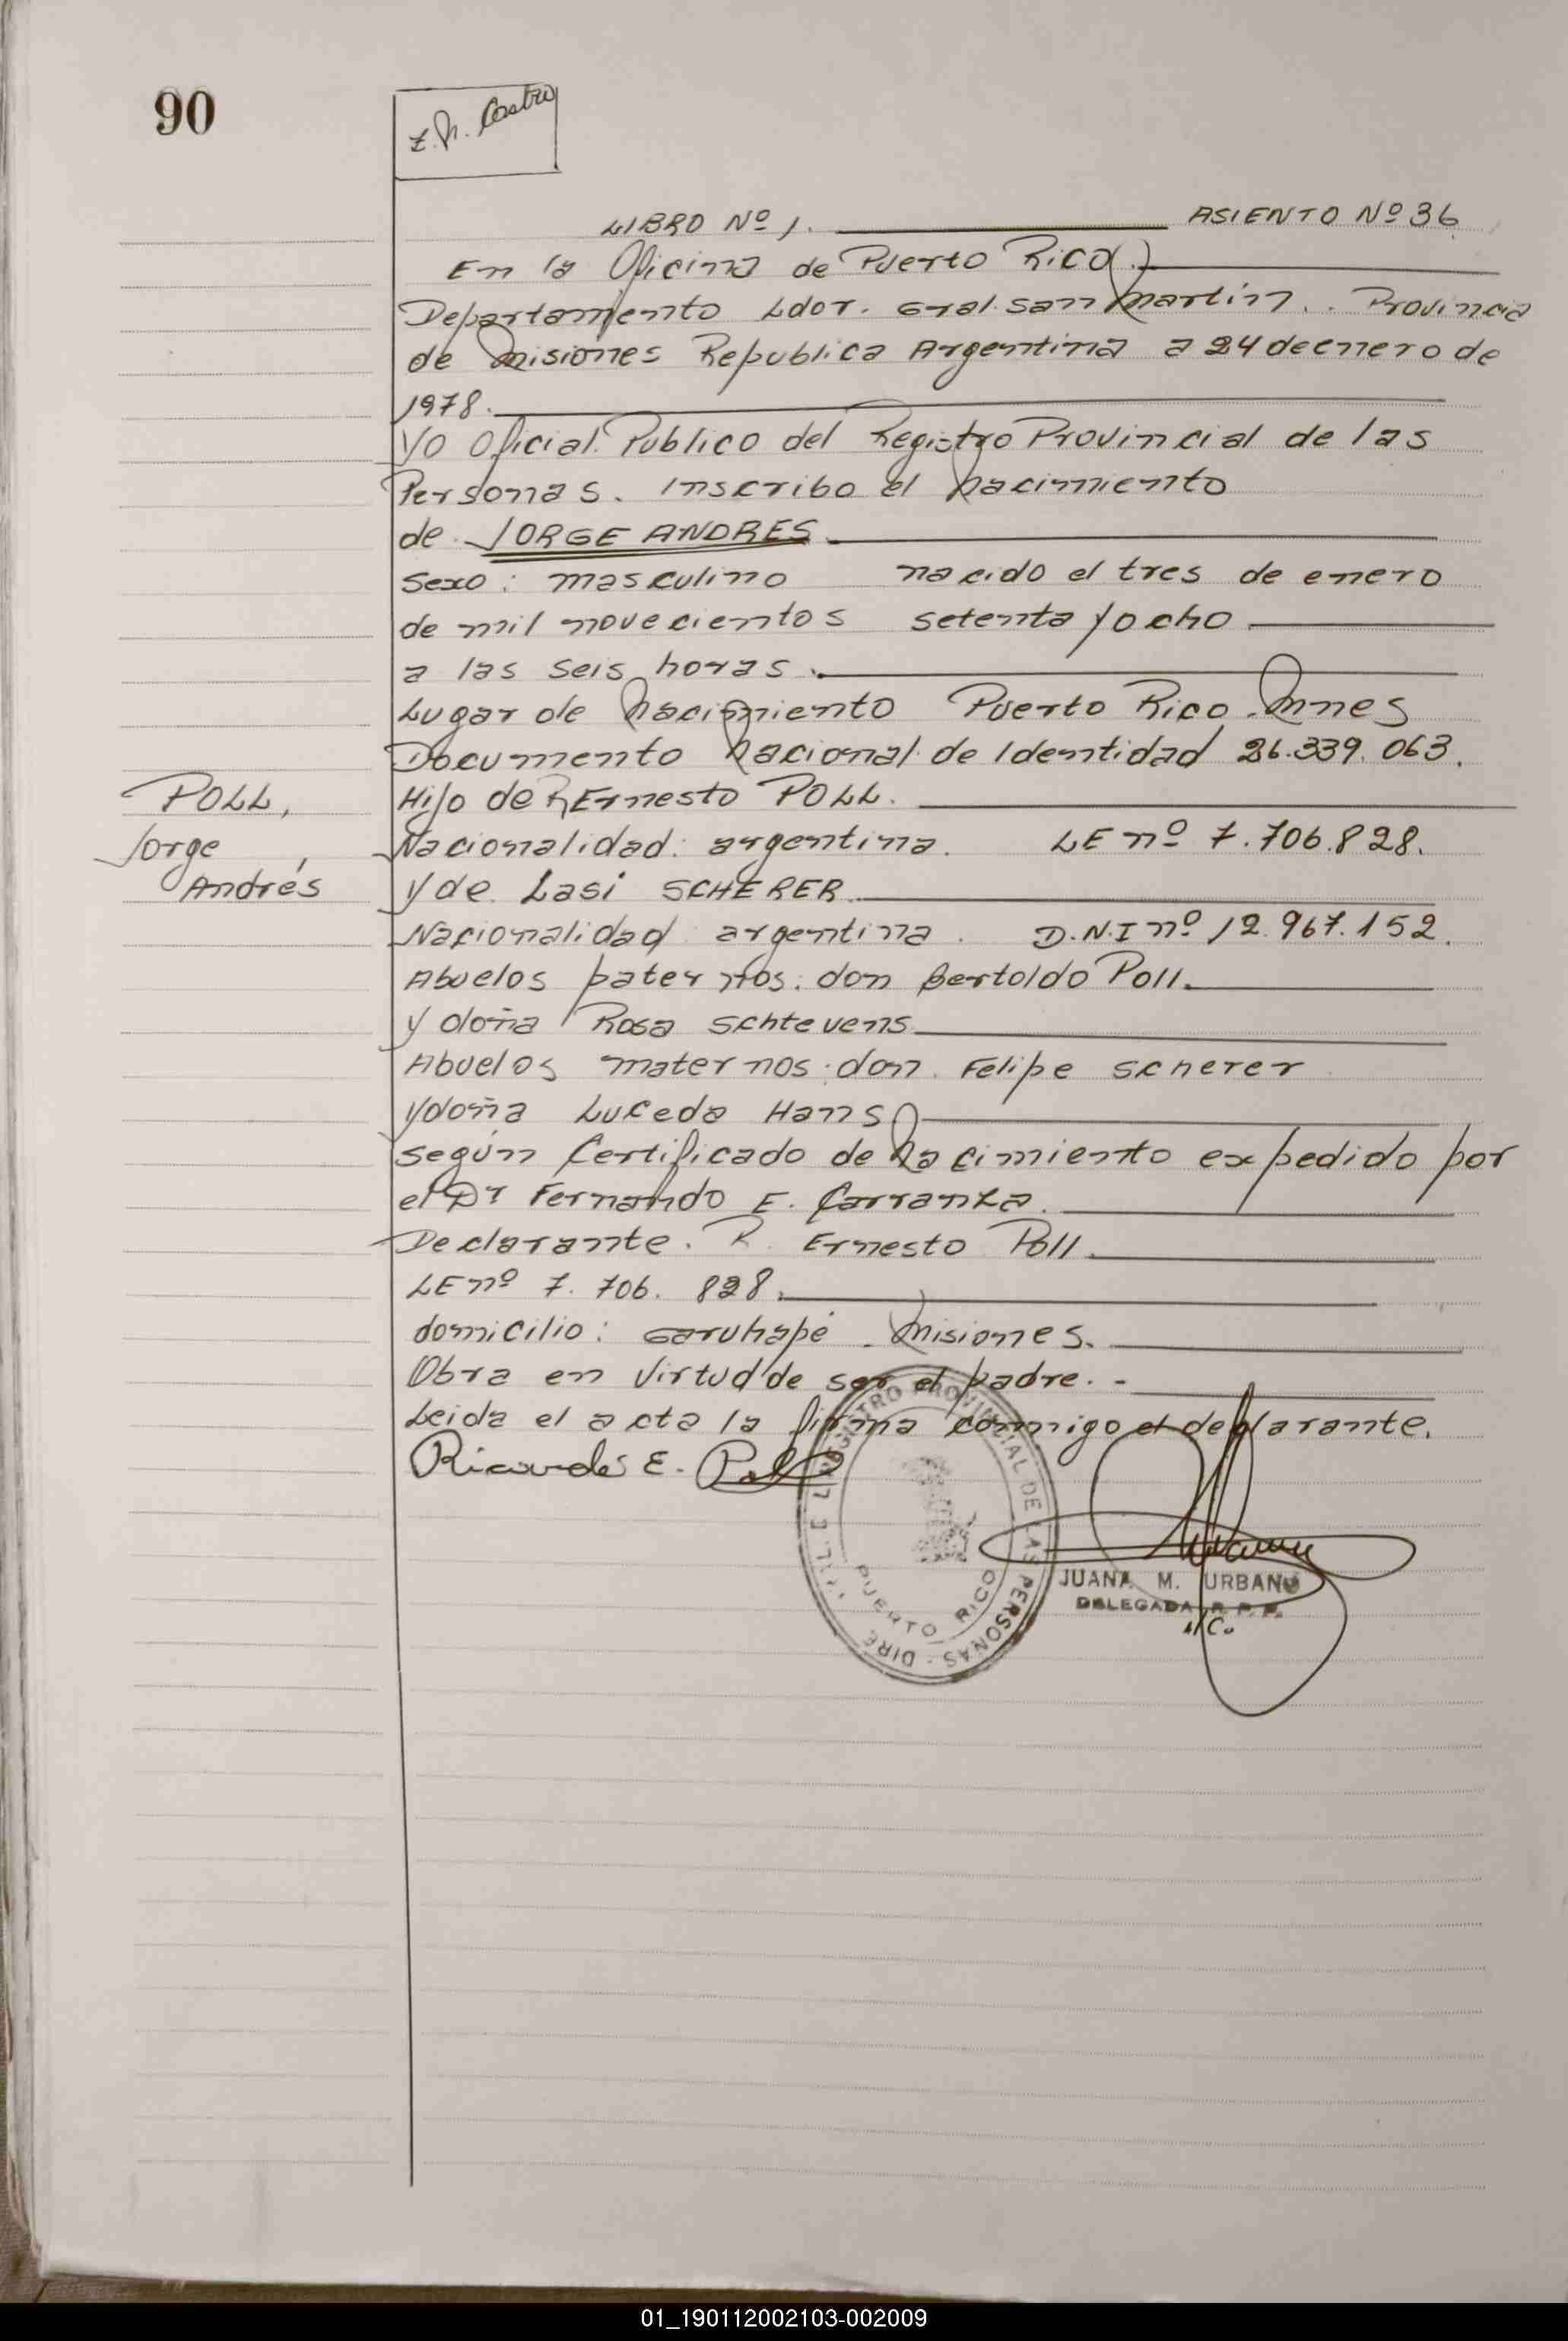 90
E. N. Castro
LIBRO Nº 1. ASIENTO Nº 36
En la Oficina de Puerto Rico.
Departamiento Ldor. Gral. San Martín.. Provincia
de Misiones Republica Argentina a 24 de enero de
1978.
Yo Oficial Publico del Registro Provincial de las
Personas. Inscribo el Nacimiento
de JORGE ANDRES
Sexo: masculino nacido el tres de enero
de mil novecientos setenta y ocho.
a las seis horas.
Lugar de Nacimiento Puerto Rico. Mnes
Documento Nacional de Identidad 26.339.063.
POLL, Hijo de R Ernesto POLL.
Jorge Nacionalidad: argentina. LE nº 7.706.828.
Andrés y de Lasi SCHERER
Nacionalidad argentina. D.N.I nº 12.967.152.
Abuelos paternos: don Bertoldo Poll.
y doña Rosa Schtevens
Abuelos maternos: don Felipe Scherer
y doña Luceda Hans
según Certificado de Nacimiento expedido por
el Dr Fernando E. Carranza.
Declarante. R. Ernesto Poll.
LE nº 7.706.828.
domicilio: Garuhapé. Misiones.
Obra en virtud de ser el padre. -
Leida el acta la firma conmigo el declarante.
Ricardo E. Poll
REGISTRO PROVINCIAL DE LAS PERSONAS - DIRE
PUERTO RICO
JUANA M. URBANO
DELEGADA R. P. P.
A/C.
01_190112002103-002009